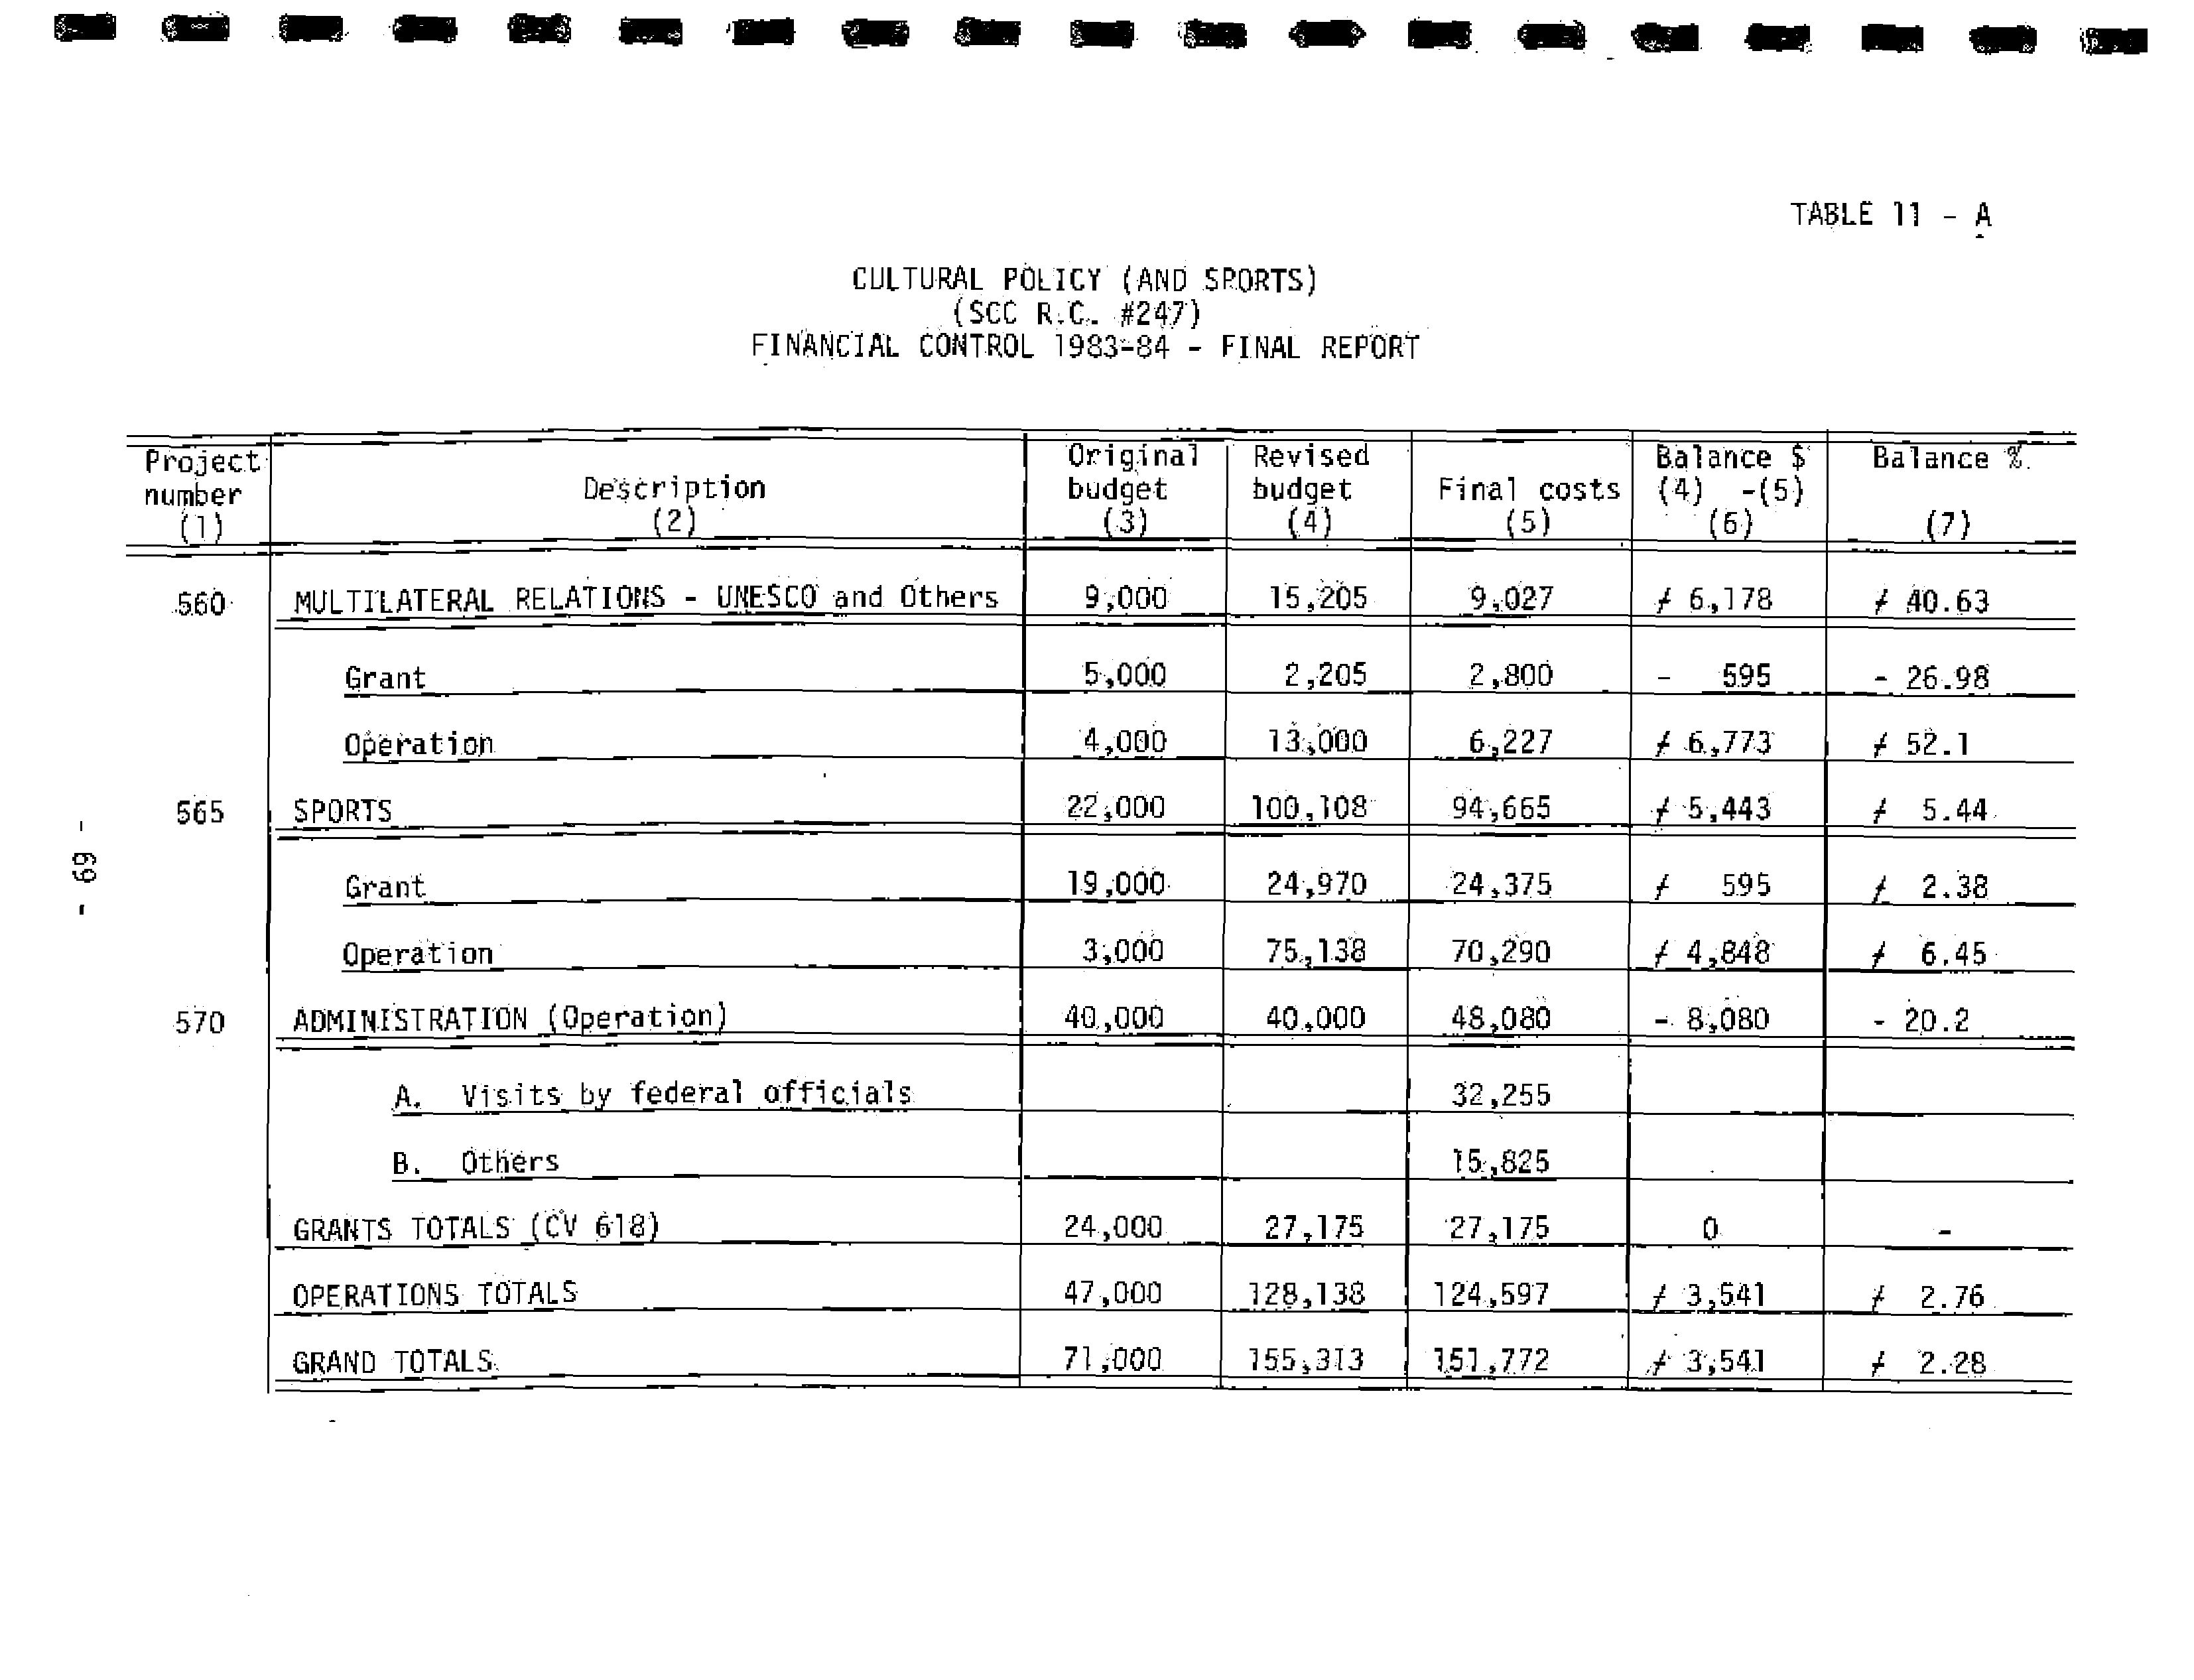 TABLE 11 - A
CULTURAL POLICY (AND SPORTS)
(SCC R.C. #247)
FINANCIAL CONTROL 1983-84 - FINAL REPORT
Project number (1) Description (2) Original budget (3) Revised budget (4) Final costs (5) Balance $ (4) -(5) (6) Balance % (7)
560 MULTILATERAL RELATIONS - UNESCO and Others 9,000 15,205 9,027 ≠ 6,178 ≠ 40.63
Grant 5,000 2,205 2,800 - 595 - 26.98
Operation 4,000 13,000 6,227 ≠ 6,773 ≠ 52.1
565 SPORTS 22,000 100,108 94,665 ≠ 5,443 ≠ 5.44
Grant 19,000 24,970 24,375 ≠ 595 ≠ 2.38
Operation 3,000 75,138 70,290 ≠ 4,848 ≠ 6.45
570 ADMINISTRATION (Operation) 40,000 40,000 48,080 - 8,080 - 20.2
A. Visits by federal officials 32,255
B. Others 15,825
GRANTS TOTALS (CV 618) 24,000 27,175 27,175 0 -
OPERATIONS TOTALS 47,000 128,138 124,597 ≠ 3,541 ≠ 2.76
GRAND TOTALS 71,000 155,313 151,772 ≠ 3,541 ≠ 2.28
- 69 -